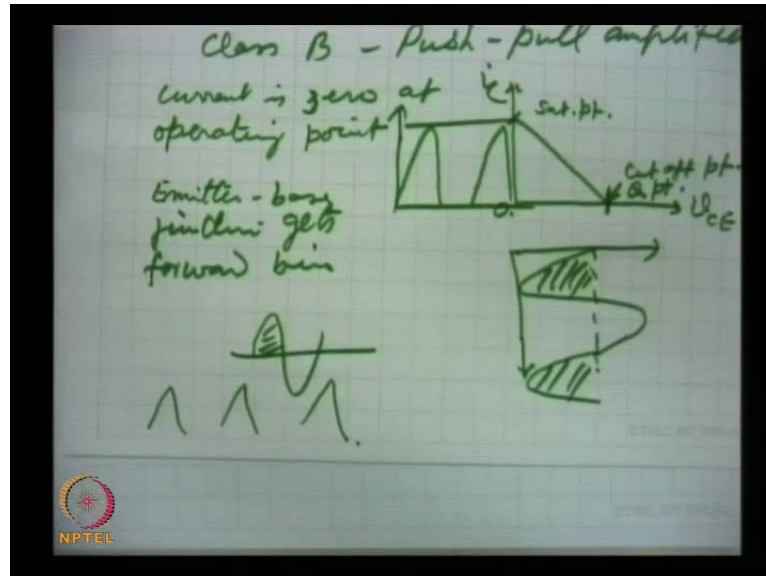 Class B - Push-pull amplifie
current is zero at
operating point
Emitter-base
junction gets
forward bias
ic
Sat. pt.
Cut off pt.
Q pt.
0
VCE
NPTEL